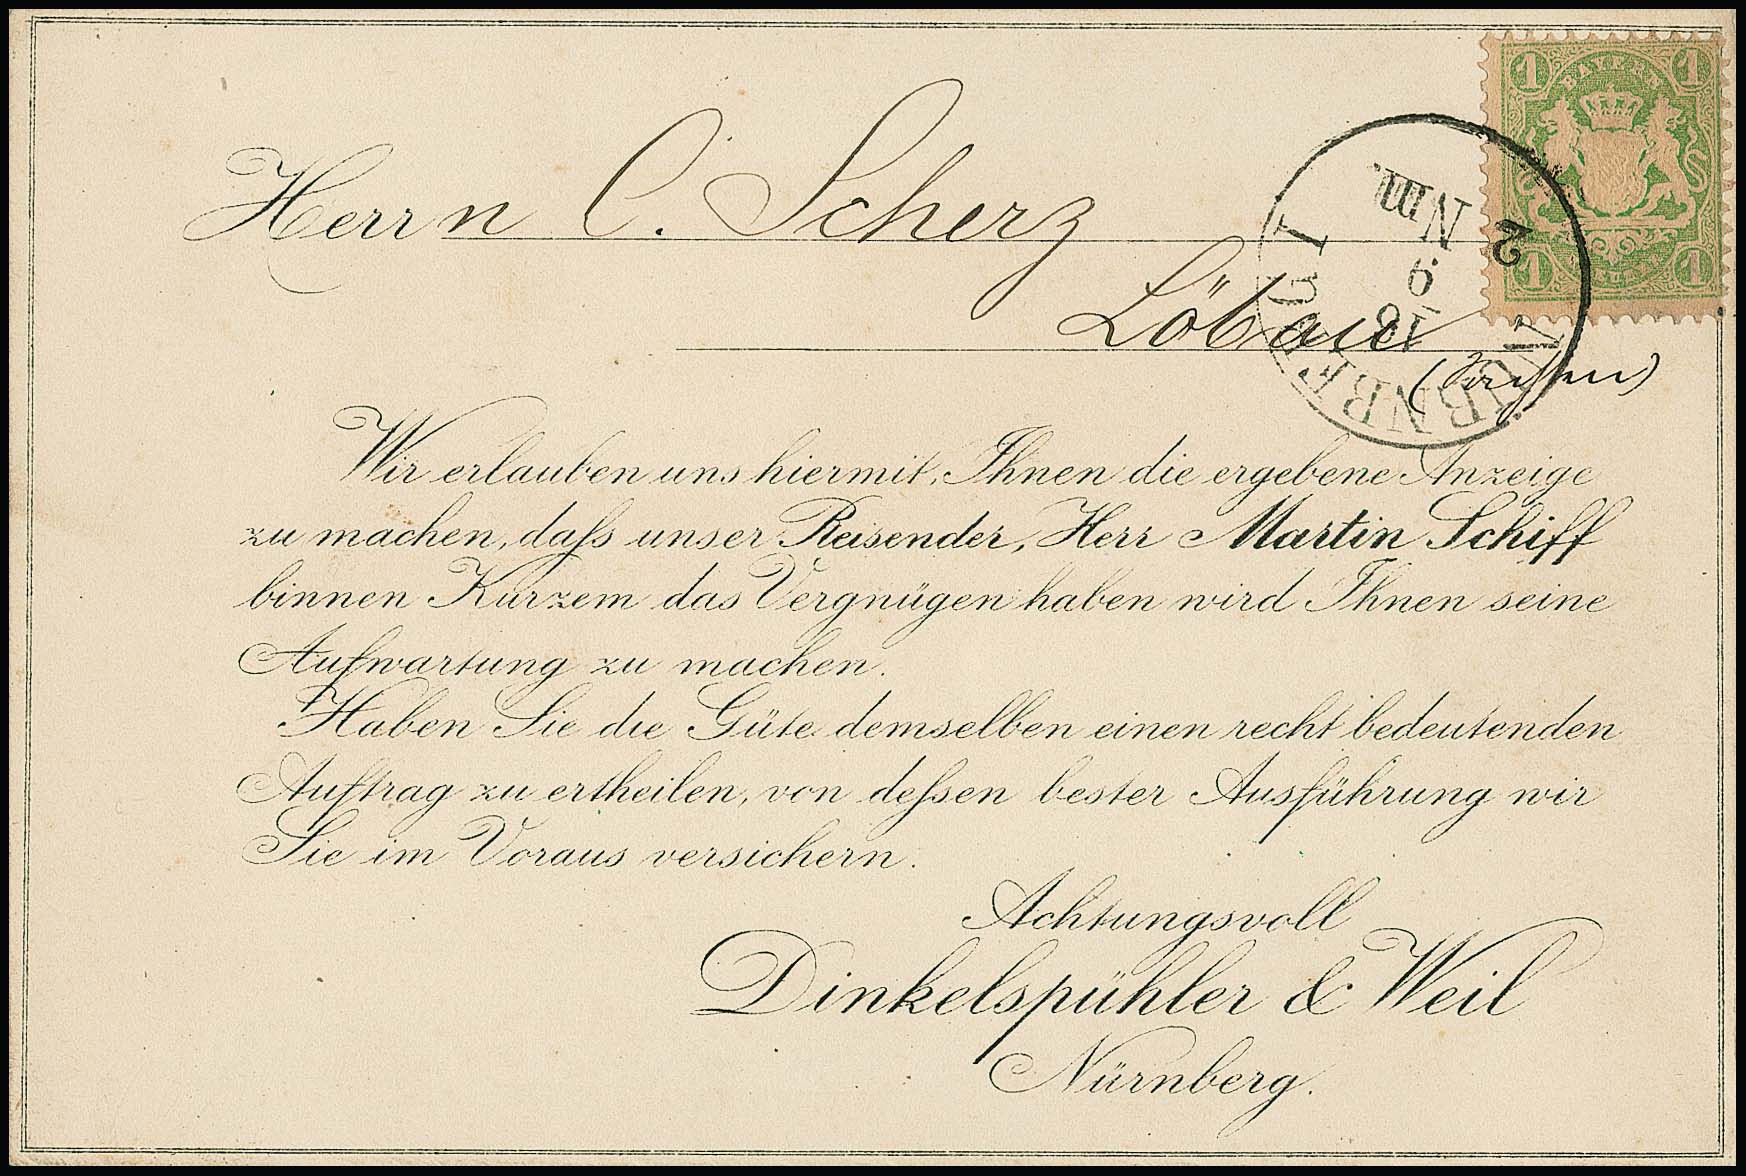 Herrn C. Scherz
Löbau
1 1
BAYERN
1 1
NÜRNBERG I
18
9
2 Nm.
Wir erlauben uns hiermit, Ihnen die ergebene Anzeige
zu machen, daſs unser Reisender, Herr Martin Schiff
binnen Kurzem das Vergnügen haben wird Ihnen seine
Aufwartung zu machen.
Haben Sie die Güte demselben einen recht bedeutenden
Auftrag zu ertheilen, von deſsen bester Ausführung wir
Sie im Voraus versichern.
Achtungsvoll
Dinkelspühler & Weil
Nürnberg.